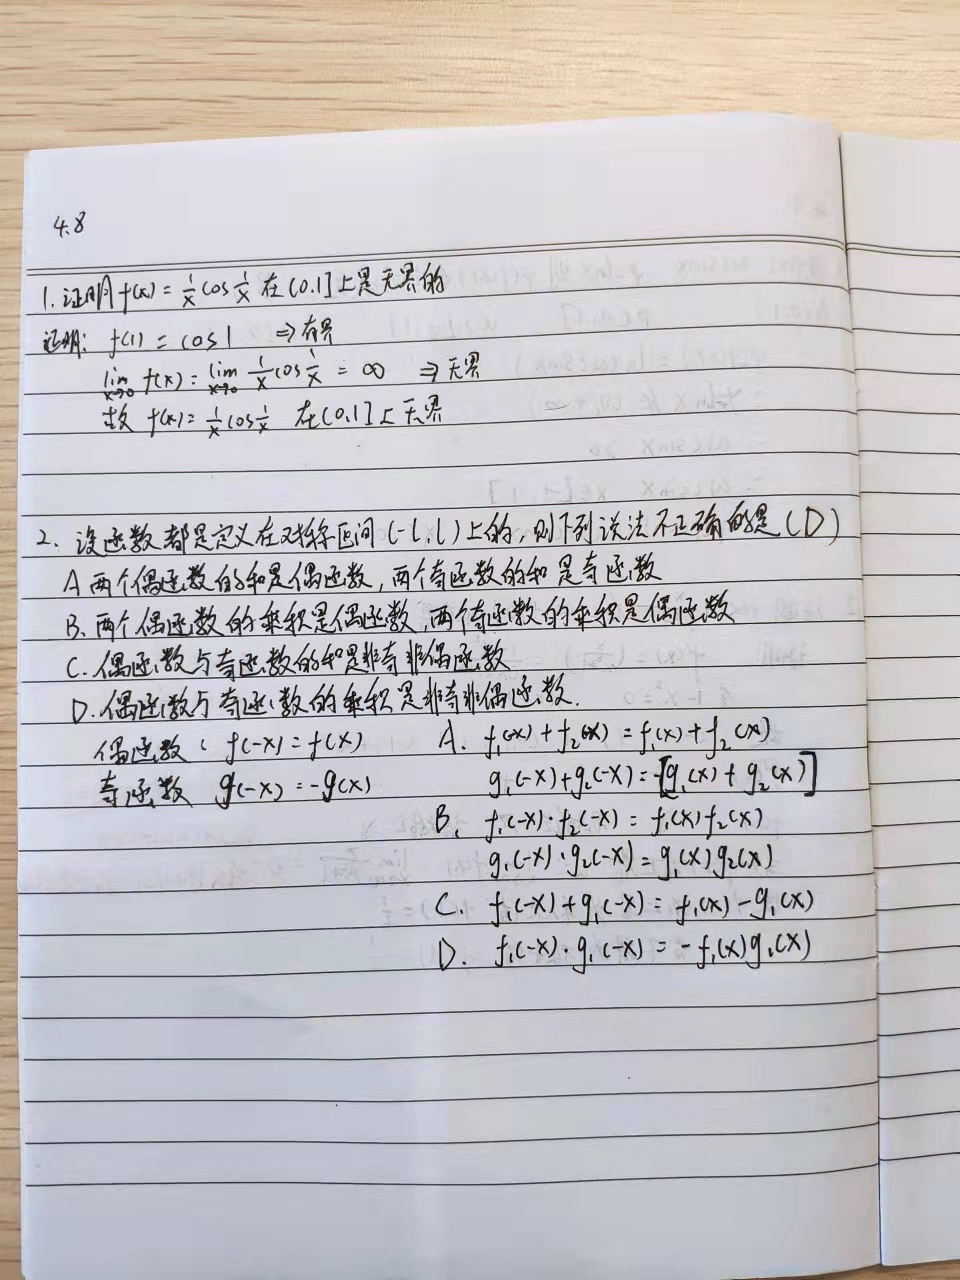 4.8
1. 证明 f(x) = 1/x cos 1/x 在 (0.1] 上是无界的
证明: f(1) = cos1 ⇒ 有界
lim x→0 f(x) = lim x→0 1/x cos 1/x = ∞ ⇒ 无界
故 f(x) = 1/x cos 1/x 在 (0.1] 上无界
2. 设函数都是定义在对称区间 (-l, l) 上的, 则下列说法不正确的是 (D)
A 两个偶函数的和是偶函数, 两个奇函数的和是奇函数
B. 两个偶函数的乘积是偶函数, 两个奇函数的乘积是偶函数
C. 偶函数与奇函数的和是非奇非偶函数
D. 偶函数与奇函数的乘积是非奇非偶函数.
偶函数: f(-x) = f(x) A. f₁(-x) + f₂(-x) = f₁(x) + f₂(x)
奇函数 g(-x) = -g(x) g₁(-x) + g₂(-x) = -[g₁(x) + g₂(x)]
B. f₁(-x)·f₂(-x) = f₁(x)f₂(x)
g₁(-x)·g₂(-x) = g₁(x)g₂(x)
C. f₁(-x) + g₁(-x) = f₁(x) - g₁(x)
D. f₁(-x)·g₁(-x) = -f₁(x)g₁(x)